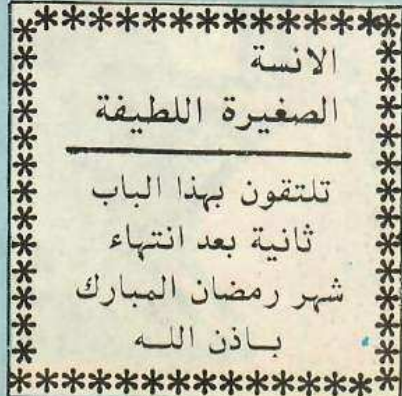 الانسة
الصغيرة اللطيفة
تلتقون بهذا الباب
ثانية بعد انتهاء
شهر رمضان المبارك
باذن الله